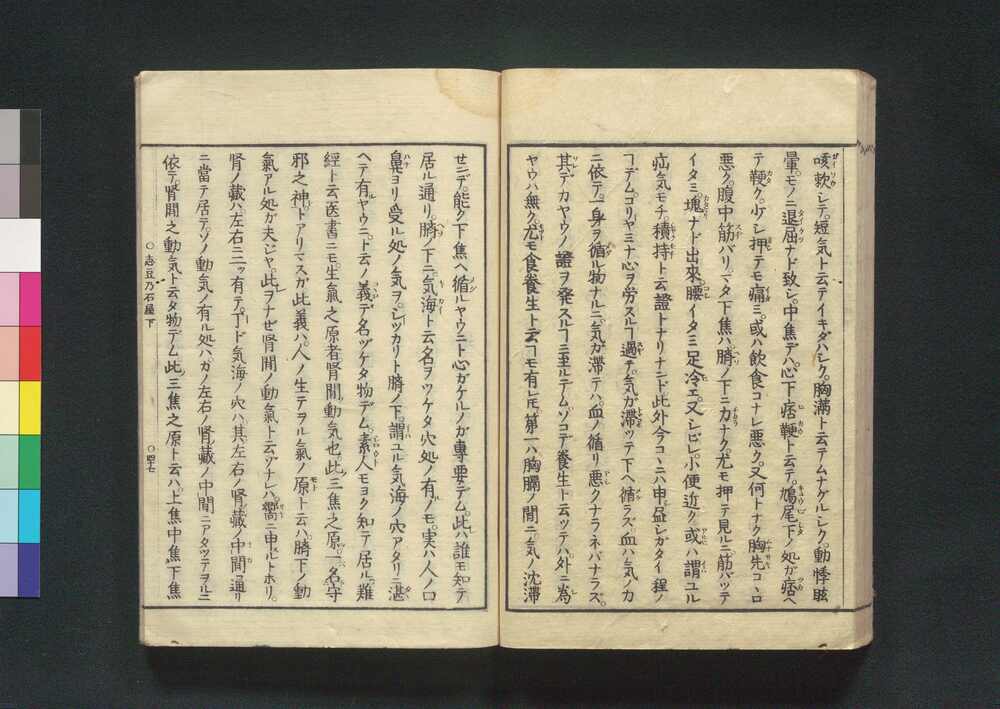 咳軟シテ。短気ト云テイキダハシク。胸満ト云テムナゲルシク。動悸眩
暈。モノニ退屈ナド致シ。中焦デハ。心下痞鞕ト云テ。鳩尾下ノ処ガ痞ヘ
テ鞕ク。少シ押テモ痛ミ。或ハ飲食コナレ悪ク。又何トナク胸先コヽロ
悪ク。腹中筋バリ。マタ下焦ハ。臍ノ下ニ力ナク。尤モ押テ見ルニ筋バツテ
イタミ。塊ナド出來腰イタミ足冷エ。又シビレ。小便近ク或ハ謂ユル
疝気モチ。積持ト云證トナリナニド此外今コヽニハ申尽シガタイ程ノ
ヿデム。ゴリヤミナ心ヲ労スルヿ過テ。気ガ滞ツテ下ヘ循ラズ。血ハ気ノカ
ニ依テ。一身ヲ循ル物ナルニ。気ガ滞テハ。血ノ循リ悪クナラネバナラス。
其デカヤウノ證ヲ発スルヿニ至ルデムソコデ養生ト云ッテハ。外ニ為
ヤウハ無ク。尤モ食養生ト云ヿモ有レ𪜈。第一ハ胸膈ノ間ニ。気ノ沈滞
セニデ。能ク下焦ヘ循ルヤウニト心ガケルノガ專要デム。此ハ誰モ知テ
居ル通リ。臍ノ下ニ気海ト云名ヲツケタ穴処ノ有ノモ。実ハ人ノ口
鼻ヨリ受ル処ノ気ヲ。シツカリト臍ノ下。謂ユル気海ノ穴アタリニ湛
ヘテ有ルヤウニ。ト云ノ義デ名ヅケタ物デム。素人モヨク知テ居ル。難
經ト云医書ニモ。生氣之原者腎間動気也。此三焦之原。一名守
邪之神。トアリマスガ此義ハ。人ノ生テヲル氣ノ原ト云ハ。臍下ノ動
氣アル処ガ夫ジヤ。此ヲナゼ腎間ノ動氣ト云ツナレハ。嚮ニ申ルトホリ。
腎ノ蔵ハ。左右ニ二ッ有テ。丁ド気海ノ穴ハ其左右ノ腎蔵ノ中間通リ
ニ當テ居テ。ソノ動気ノ有ル処ハ。ガノ左右ノ腎蔵ノ中間ニアタツテヲルニ
依テ。腎間之動気ト云タ物デム。此三焦之原ト云ハ。上焦中焦下焦
○志豆乃石屋下
○四七